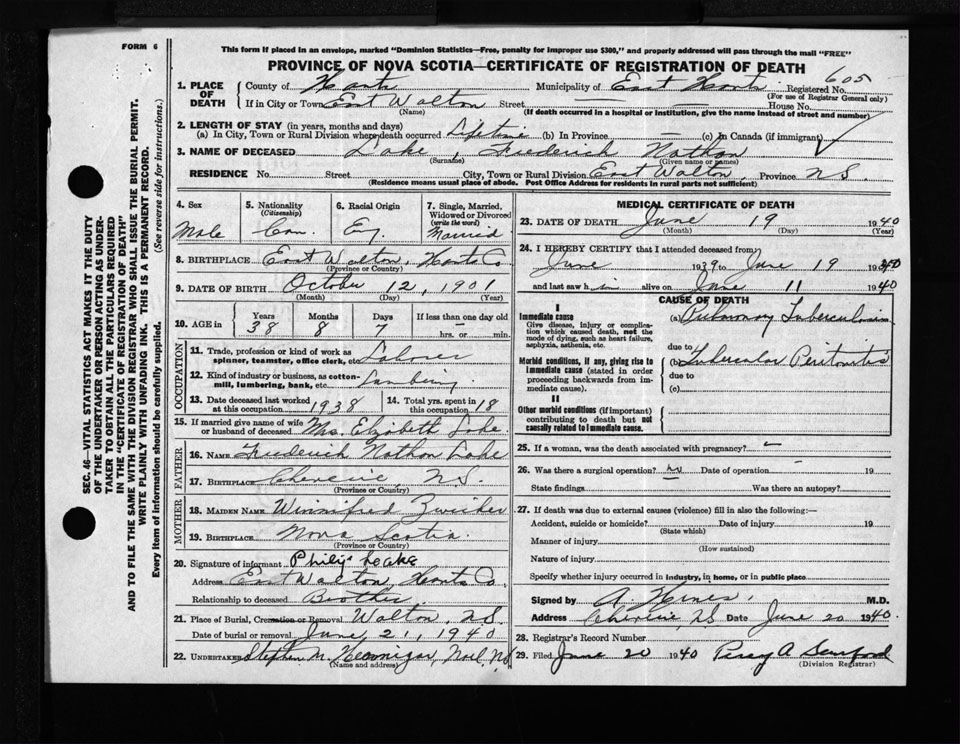 FORM 6
This form if placed in an envelope, marked "Dominion Statistics—Free, penalty for improper use $300," and properly addressed will pass through the mail "FREE"
PROVINCE OF NOVA SCOTIA—CERTIFICATE OF REGISTRATION OF DEATH
605
1. PLACE OF DEATH
County of Hants Municipality of East Hants Registered No.
(For use of Registrar General only)
If in City or Town East Walton Street — House No. —
(Name) (If death occurred in a hospital or institution, give the name instead of street and number)
2. LENGTH OF STAY (in years, months and days)
(a) In City, Town or Rural Division where death occurred Lifetime (b) In Province — (c) In Canada (if immigrant)
3. NAME OF DECEASED Lake, Frederick Nathan
(Surname) (Given name or names)
RESIDENCE No. Street City, Town or Rural Division East Walton, Province N.S.
(Residence means usual place of abode. Post Office Address for residents in rural parts not sufficient)
4. Sex Male
5. Nationality (Citizenship) Can.
6. Racial Origin
7. Single, Married, Widowed or Divorced (write the word) Married
8. BIRTHPLACE East Walton, Hants Co
(Province or Country)
9. DATE OF BIRTH October 12, 1901
(Month) (Day) (Year)
10. AGE in Years 38 Months 8 Days 7 If less than one day hrs. or min.
OCCUPATION
11. Trade, profession or kind of work as spinner, teamster, office clerk, etc. Laborer
12. Kind of industry or business, as cotton-mill, lumbering, bank, etc. Lumbering
13. Date deceased last worked at this occupation 1938
14. Total yrs. spent in this occupation 18
15. If married give name of wife or husband of deceased Mrs. Elizabeth Lake
FATHER
16. NAME Frederick Nathan Lake
17. BIRTHPLACE Cheverie, N.S.
(Province or Country)
MOTHER
18. MAIDEN NAME Winnifred
19. BIRTHPLACE Nova Scotia
(Province or Country)
20. Signature of informant Philip Leake
Address East Walton, Hants Co.
Relationship to deceased Brother
21. Place of Burial, Cremation or Removal Walton, N.S.
Date of burial or removal June, 21, 1940
22. UNDERTAKER Stephen M. Noel, N.S.
(Name and address)
MEDICAL CERTIFICATE OF DEATH
23. DATE OF DEATH June 19 1940
(Month) (Day) (Year)
24. I HEREBY CERTIFY that I attended deceased from
June 1939 to June 19 1940
and last saw him alive on June 11 1940
CAUSE OF DEATH
I
Immediate cause
Give disease, injury or complication which caused death, not the mode of dying, such as heart failure, asphyxia, asthenia, etc.
(a) Pulmonary Tuberculosis
due to
Morbid conditions, if any, giving rise to immediate cause (stated in order proceeding backwards from immediate cause).
(b) Tubercular Peritonitis
due to
(c)
II
Other morbid conditions (if important) contributing to death but not causally related to immediate cause.
25. If a woman, was the death associated with pregnancy? —
26. Was there a surgical operation? no Date of operation — 19
State findings Was there an autopsy?
27. If death was due to external causes (violence) fill in also the following:—
Accident, suicide or homicide? Date of injury 19
(State which)
Manner of injury
(How sustained)
Nature of injury
Specify whether injury occurred in industry, in home, or in public place
Signed by M.D.
Address Cheverie, N.S. Date June 20 1940
28. Registrar's Record Number
29. Filed June 20 1940 Percy A.
(Division Registrar)
SEC. 46—VITAL STATISTICS ACT MAKES IT THE DUTY
OF THE UNDERTAKER OR PERSON ACTING AS UNDER-
TAKER TO OBTAIN ALL THE PARTICULARS REQUIRED
IN THE "CERTIFICATE OF REGISTRATION OF DEATH"
AND TO FILE THE SAME WITH THE DIVISION REGISTRAR WHO SHALL ISSUE THE BURIAL PERMIT.
WRITE PLAINLY WITH UNFADING INK. THIS IS A PERMANENT RECORD.
Every item of information should be carefully supplied. (See reverse side for instructions.)